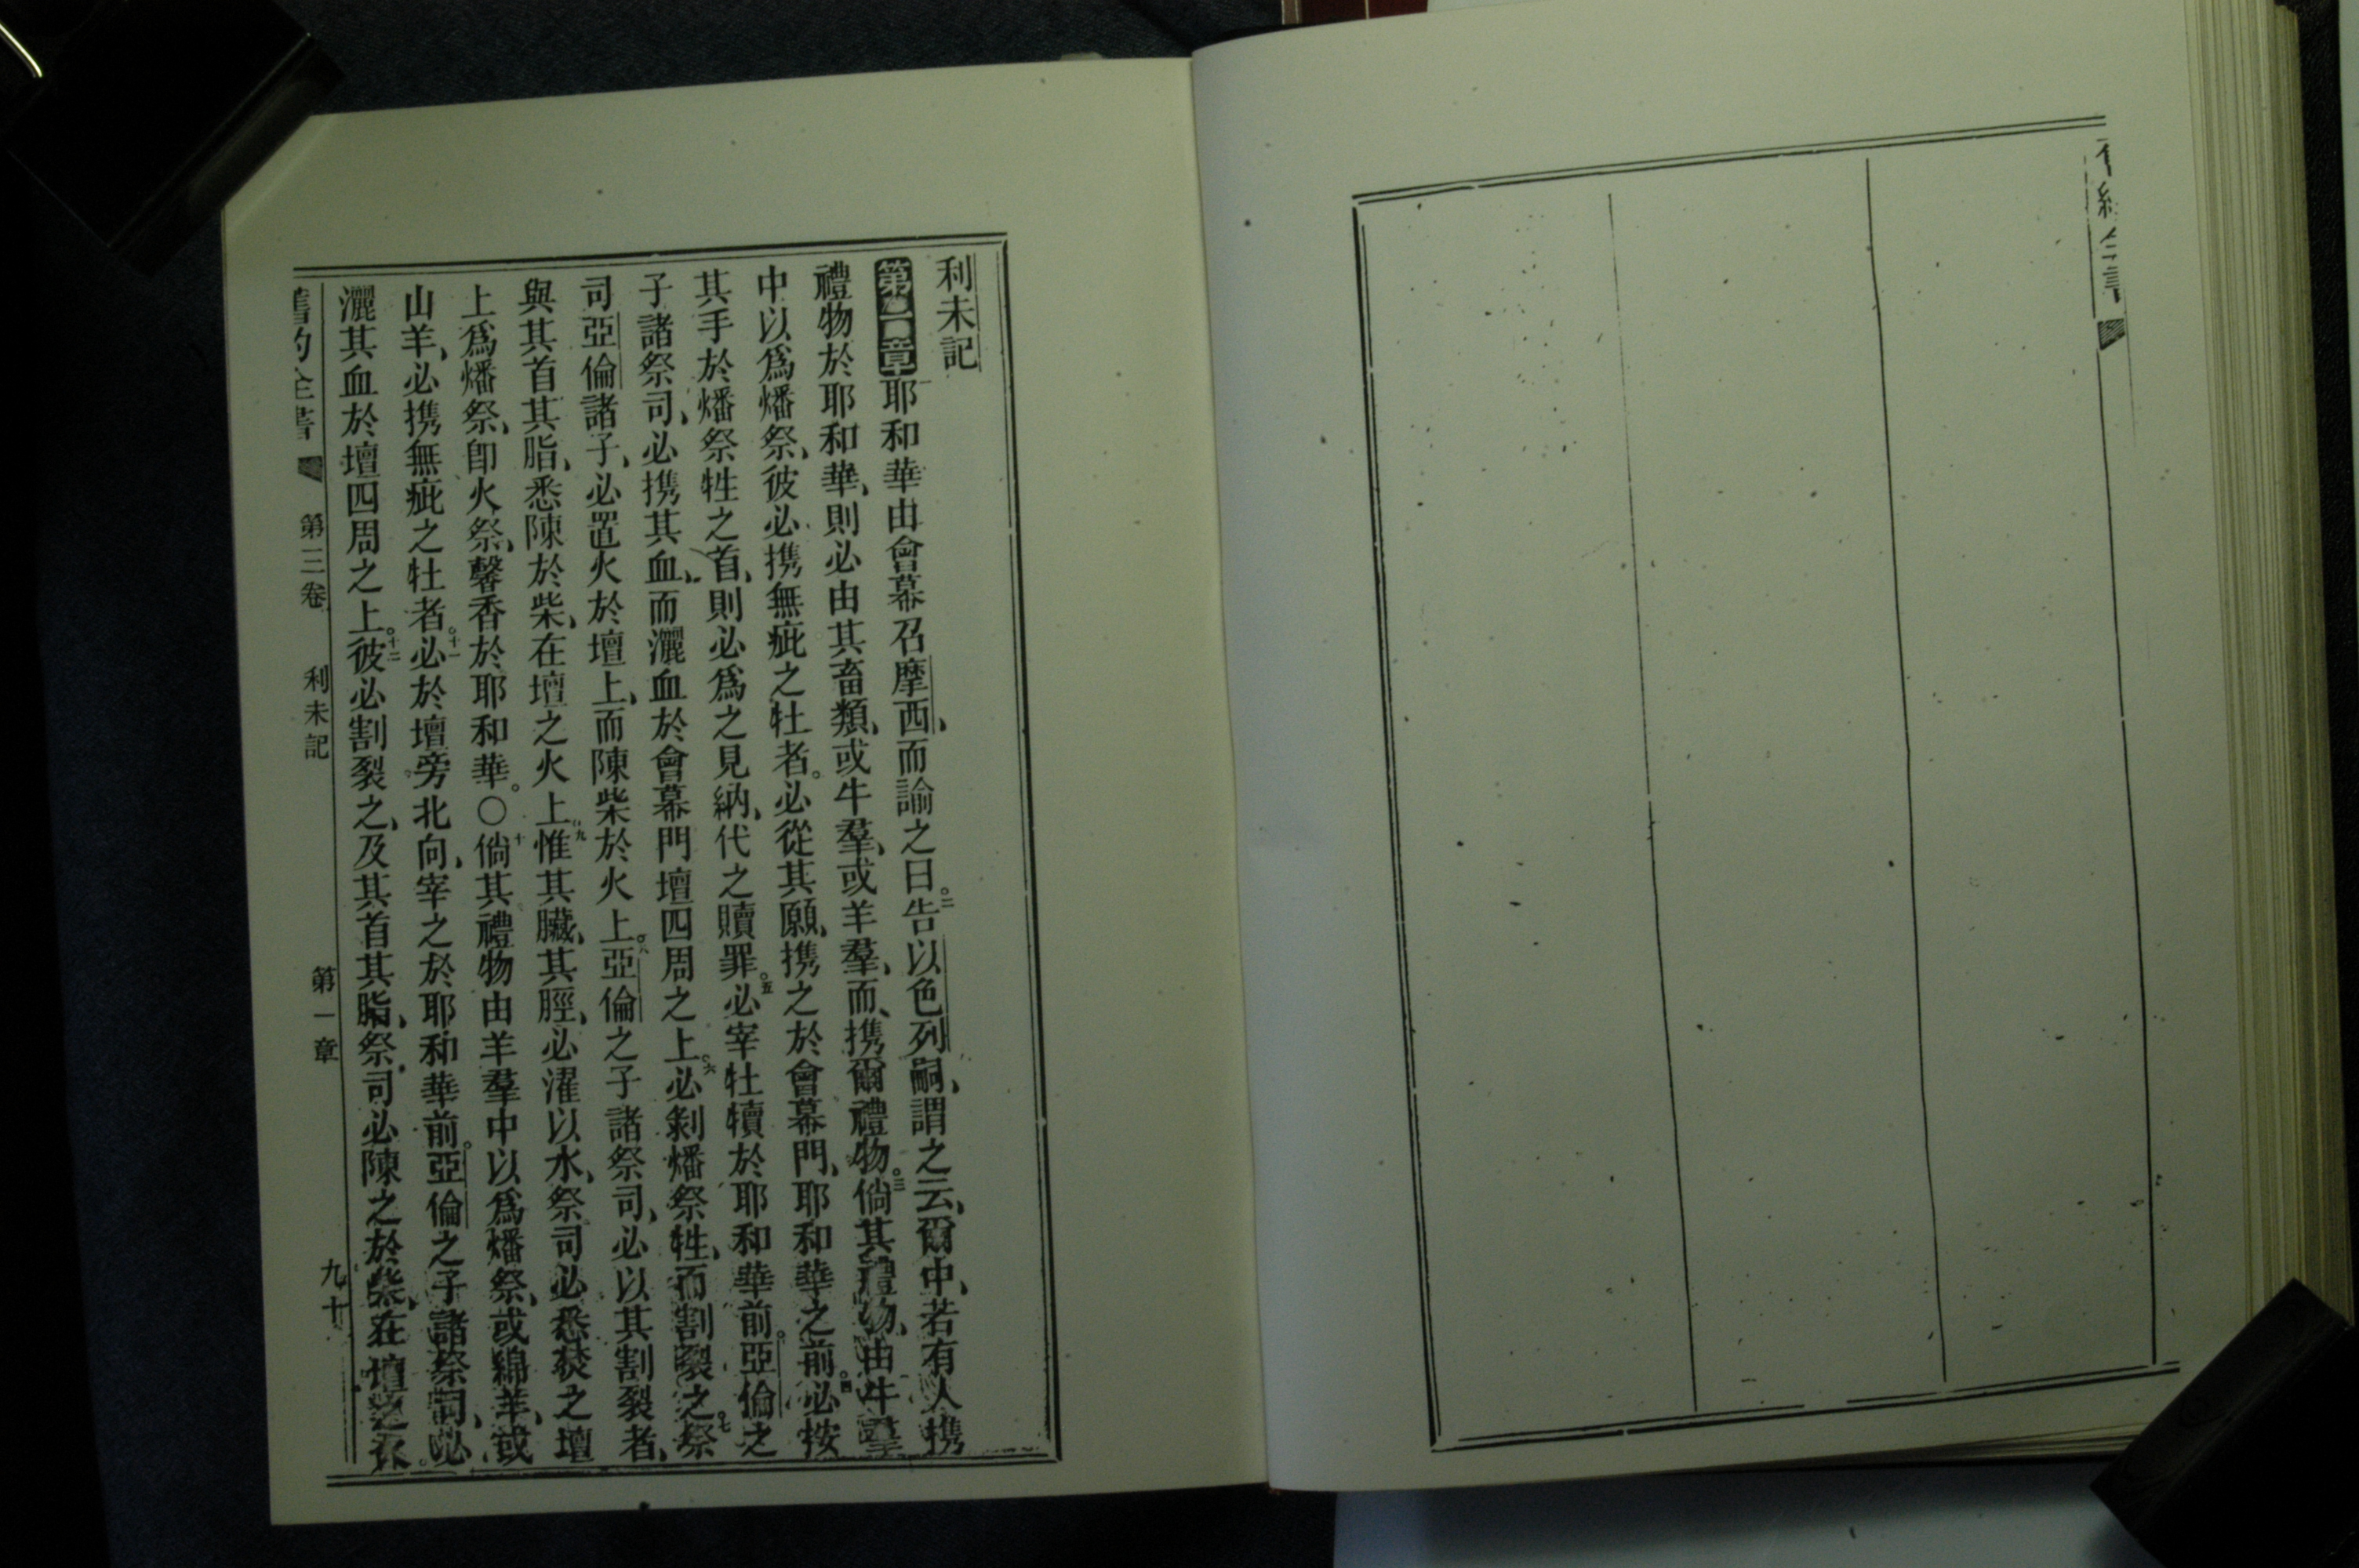 利未記
第一章耶和華由會幕召摩西、而諭之曰。二告以色列嗣、謂之云、爾中、若有人携
禮物於耶和華、則必由其畜類、或牛羣、或羊羣、而携爾禮物。三倘其禮物、由牛羣
中以爲燔祭、彼必携無疵之牡者。必從其願、携之於會幕門、耶和華之前。四必按
其手於燔祭牲之首、則必爲之見納、代之贖罪。五必宰牡犢於耶和華前。亞倫之
子諸祭司、必携其血、而灑血於會幕門壇四周之上。六必剝燔祭牲、而割裂之。七祭
司亞倫諸子、必置火於壇上、而陳柴於火上。八亞倫之子諸祭司、必以其割裂者、
與其首其脂、悉陳於柴、在壇之火上。九惟其臟、其脛、必濯以水、祭司必悉焚之壇
上爲燔祭、卽火祭、馨香於耶和華。〇十倘其禮物由羊羣中以爲燔祭、或綿羊、或
山羊、必携無疵之牡者。十一必於壇旁北向、宰之於耶和華前。亞倫之子諸祭司、必
灑其血於壇四周之上。十二彼必割裂之、及其首其脂、祭司必陳之於柴、在壇之火。
舊約全書 第三卷 利未記 第一章 九十